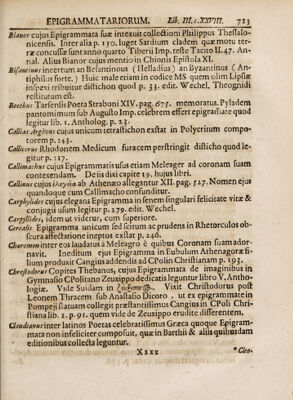 EPIGRAMMATARIORUM. Lib. III. c. XXVIII. 713
Bianor cujus Epigrammata suæ intexuit collectioni Philippus Thessalo-
nicensis. Inter alia p. 150. luget Sardium cladem quæ motu ter-
ræ concussæ sunt anno quarto Tiberii Imp. teste Tacito II. 47. An-
nal. Alius Bianor cujus mentio in Chionis Epistola XI.
Bisantinus incertum an Belantinous (Helladius) an Byzantinus (An-
tiphilus forte.) Huic male etiam in codice MS. quem olim Lipsiæ
inspexi tribuitur distichon quod p. 33. edit. Wechel. Theognidi
restitutum est.
Boethus Tarsensis Poeta Straboni XIV. pag. 675. memoratus. Pyladem
pantomimum sub Augusto Imp. celebrem effert epigrammate quod
legitur lib. 1. Antholog. p. 23.
Callias Argivus cujus unicum tetrastichon exstat in Polycritum compo-
torem p. 243.
Callicerus Rhodonem Medicum furacem perstringit disticho quod le-
gitur p. 117.
Callimachus cujus Epigrammatis usus etiam Meleager ad coronam suam
contexendam. De iis dixi capite 19. hujus libri.
Callinus cujus ab Athenæo allegantur XII. pag. 527. Nomen ejus
quandoque cum Callimacho confunditur.
Carphylides cujus elegans Epigramma in senem singulari felicitate vitæ &
conjugii usum legitur p. 279. edit. Wechel.
Carpyllides, idem ut videtur, cum superiore.
Cerealis Epigramma unicum sed scitum ac prudens in Rhetorculos ob-
scura affectatione ineptos exstat p. 246.
Chæremon inter eos laudatus à Meleagro è quibus Coronam suam ador-
navit. Ineditum ejus Epigramma in Eubulum Athenagoræ fi-
lium produxit Cangius addendis ad CPolin Christianam p. 193.
Christodorus Copites Thebanus, cujus Epigrammata de imaginibus in
Gymnasio CPolitano Zeuxippo dedicatis leguntur libro V. Antho-
logiæ. Vide Suidam in Vixit Christodorus post
Leonem Thracem sub Anastasio Dicoro, ut ex epigrammate in
Pompeji statuam collegit præstantissimus Cangius in CPoli Chri-
stiana lib. 1. p. 91. quem vide de Zeuxippo erudite differentem.
Claudianus inter latinos Poetas celebratissimus Græca quoque Epigram-
mata non infeliciter composuit, quæ in Barthii & aliis quibusdam
editionibus collecta leguntur.
Xxxx * Cleo-